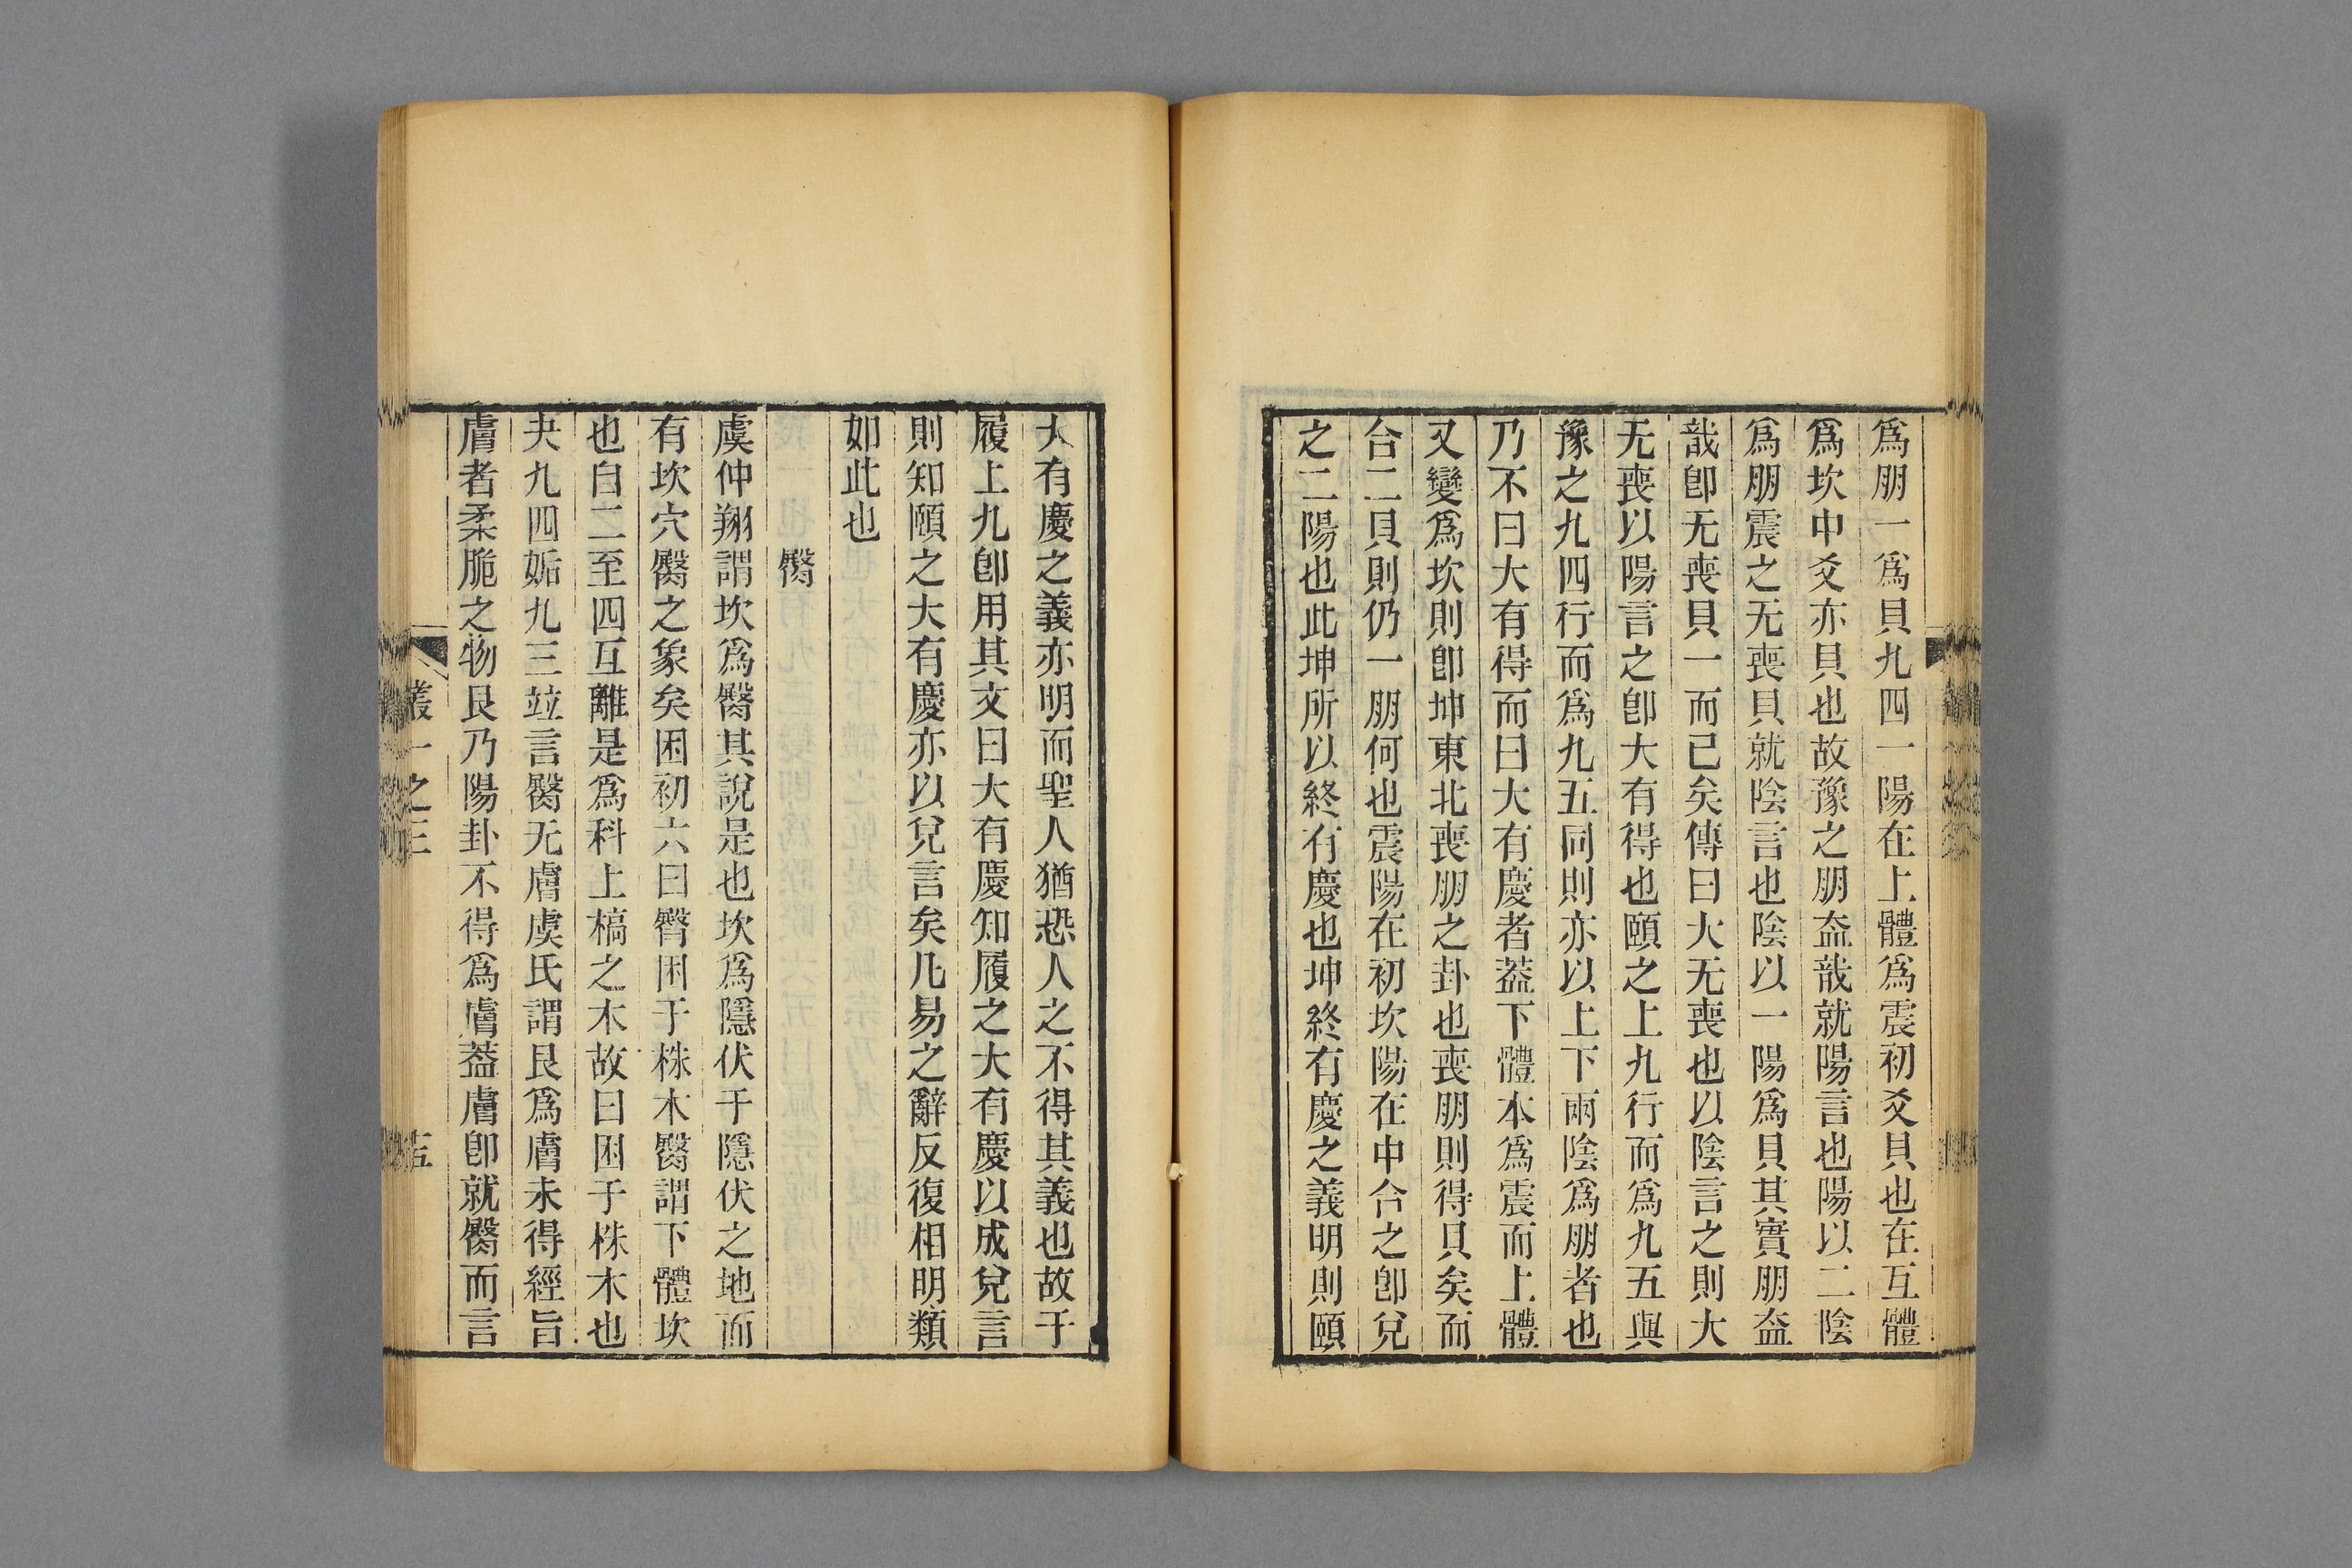 爲朋一爲貝九四一陽在上體爲震初爻貝也在互體
爲坎中爻亦貝也故豫之朋盍戠就陽言也陽以二陰
爲朋震之无喪貝就陰言也陰以一陽爲貝其實朋盍
戠卽无喪貝一而已矣傳曰大无喪也以陰言之則大
无喪以陽言之卽大有得也頤之上九行而爲九五與
豫之九四行而爲九五同則亦以上下兩陰爲朋者也
乃不曰大有得而曰大有慶者葢下體本爲震而上體
又變爲坎則卽坤東北喪朋之卦也喪朋則得貝矣而
合二貝則仍一朋何也震陽在初坎陽在中合之卽兌
之二陽也此坤所以終有慶也坤終有慶之義明則頤
大有慶之義亦明而聖人猶恐人之不得其義也故于
履上九卽用其文曰大有慶知履之大有慶以成兌言
則知頤之大有慶亦以兌言矣凡易之辭反復相明類
如此也
臋
虞仲翔謂坎爲臋其說是也坎爲隱伏于隱伏之地而
有坎穴臋之象矣困初六曰臀困于株木臋謂下體坎
也自二至四互離是爲科上槁之木故曰困于株木也
夬九四姤九三竝言臋无膚虞氏謂艮爲膚未得經旨
膚者柔脆之物艮乃陽卦不得爲膚葢膚卽就臋而言
叢一之三
十五